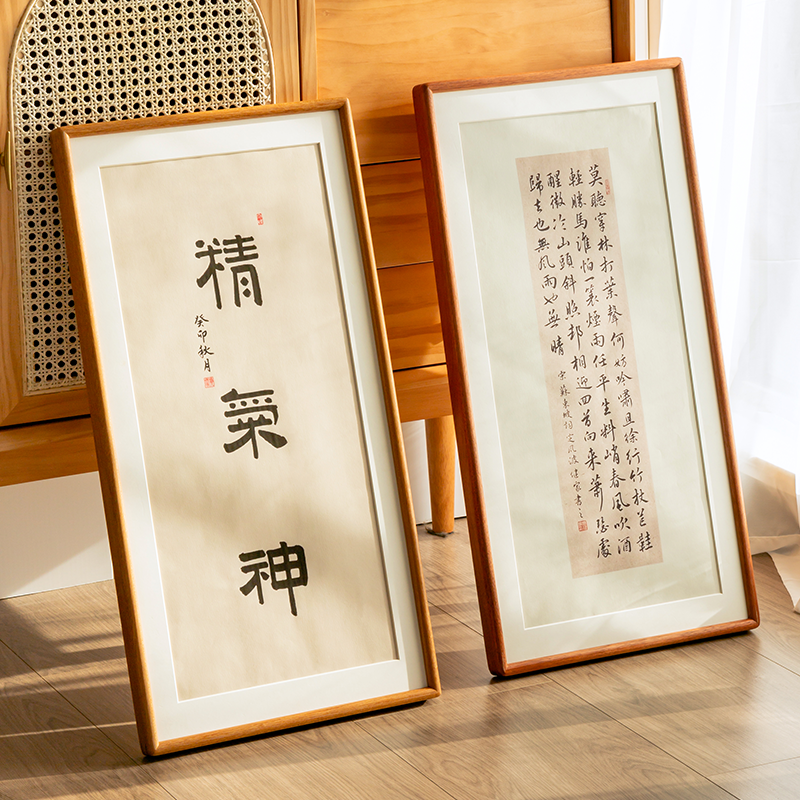 精氣神
癸卯秋月
莫聽穿林打葉聲何妨吟嘯且徐行竹杖芒鞋
輕勝馬誰怕一蓑煙雨任平生料峭春風吹酒
醒微冷山頭斜照却相迎回首向來蕭瑟處
歸去也無風雨也無晴
宋蘇東坡詞定風波 書之